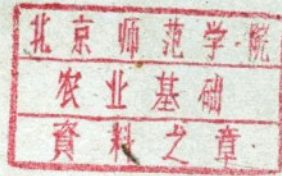 北京师范学院
农业基础
資料之章